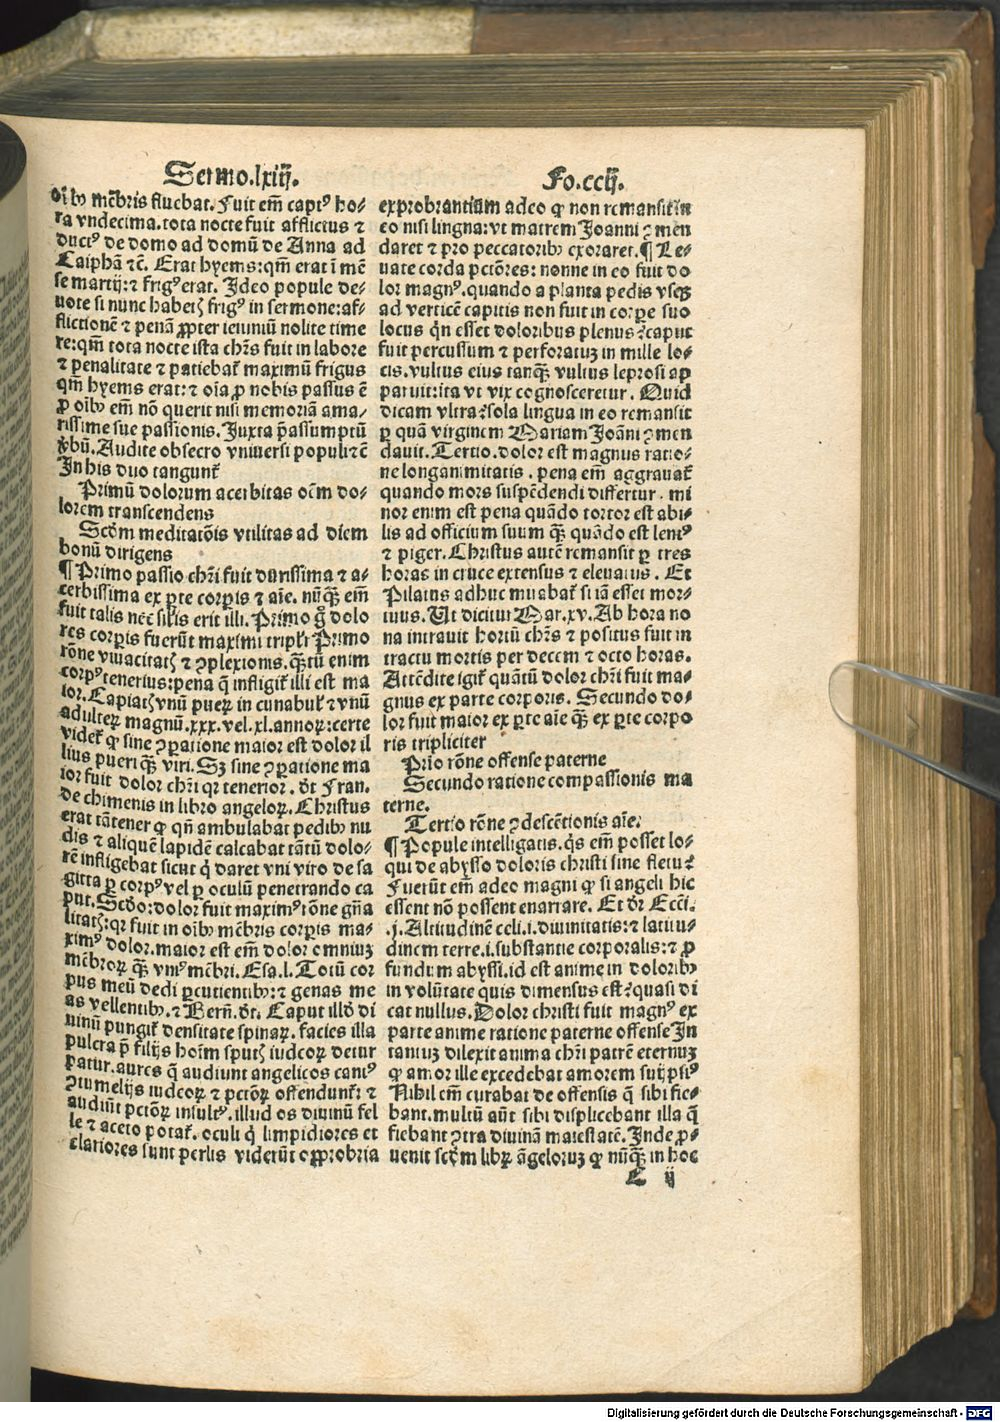 Sermo.lxiij.
Fo.ccij.
oib9 mēbris fluebat. Fuit em̄ capt9 ho⸗
ra vndecima. tota nocte fuit afflictus ⁊
duct9 de domo ad domū de Anna ad
Caiphā ⁊c̄. Erat hyems: qm̄ erat ī mē
se martij: ⁊ frig9 erat. Ideo popule de⸗
uote si nunc habetꝭ frig9 in sermone: af⸗
flictionē ⁊ penā ꝓpter ieiuniū nolite time
re: qm̄ tota nocte ista chr̄s fuit in labore
⁊ penalitate ⁊ patiebat᷑ maximū frigus
qm̄ hyems erat: ⁊ oīa ꝓ nobis passus ē
ꝓ oib9 em̄ nō querit nisi memoriā ama⸗
rissime sue passionis. Juxta p̄assumptū
ꝟbū. Audite obsecro vniuersi populi ⁊c̄
In his duo tangunt᷑
Primū dolorum acerbitas oēm do⸗
lorem transcendens
Scd̄m meditatōis vtilitas ad diem
bonū dirigens
¶ Primo passio chr̄i fuit durissima ⁊ a⸗
cerbissima ex ꝑte corꝑis ⁊ aīe. nūqꝫ em̄
fuit talis nec sil̄is erit illi. Primo g̊ dolo
res corꝑis fuerūt maximi tripl̄r Primo
rōne viuacitatꝭ ⁊ ꝯplexionis. qꝫtū enim
corp9 tenerius: pena q̄ infligit᷑ illi est ma
ior. Capiatꝭ vnū pueꝝ in cunabul᷑ ⁊ vnū
adulteꝝ magnū. xxx. vel. xl. annoꝝ: certe
videt᷑ ꝙ sine ꝯꝑatione maior est dolor il
lius pueri qꝫ viri. Sꝫ sine ꝯꝑatione ma
ior fuit dolor chr̄i qꝛ tenerior. vt Fran.
de chimenis in libro angeloꝝ. Christus
erat tā tener ꝙ qn̄ ambulabat pedib9 nu
dis ⁊ aliquē lapidē calcabat tātū dolo⸗
rē infligebat sicut q̇ daret vni viro de sa
gitta ꝑ corp9 vel ꝑ oculū penetrando ca
put. Scd̄o: dolor fuit maxim9 rōne gn̄a
litatꝭ: qꝛ fuit in oib9 mēbris corꝑis ma⸗
xim9 dolor. maior est em̄ dolor omniuꝫ
mēbroꝝ qꝫ vni9 mēbri. Esa. l. Totū cor
pus meū dedi ꝑcutientib9: ⁊ genas me
as vellentib9. ⁊ Bern̄. dt̄. Caput illd̄ di
uinū pungit᷑ densitate spinaꝝ. facies illa
pulcra p̄ filijs hoīm sputꝭ iudeoꝝ detur
patur. aures q̄ audiunt angelicos cant9
ꝯtumelijs iudeoꝝ ⁊ pctōꝝ offendunt᷑: ⁊
audiūt pctōꝝ insult9. illud os diuinū fel
le ⁊ aceto potat᷑. oculi q̇ limpidiores et
clariores sunt perlis viderūt opprobria
exprobrantium adeo ꝙ non remansit in
eo nisi lingua: vt matrem Joanni ꝯmen
daret ⁊ pro peccatorib9 exoraret. ¶ Le⸗
uate corda pctōres: nonne in eo fuit do
lor magn9. quando a planta pedis vsqꝫ
ad verticē capitis non fuit in corpe suo
locus qn̄ esset doloribus plenus: caput
fuit percussum ⁊ perforatuꝫ in mille lo⸗
cis. vultus eius tanqꝫ vultus leprosi ap
paruit: ita vt vix cognosceretur. Quid
dicam vltra: sola lingua in eo remansit
ꝑ quā virginem Mariam Joāni ꝯmen
dauit. Tertio. dolor est magnus ratio⸗
ne longanimitatis. pena em̄ aggrauat᷑
quando mors suspēdendi differtur. mi
nor enim est pena quādo tortor est abi⸗
lis ad officium suum qꝫ quādo est lent9
⁊ piger. Christus autē remansit ꝑ tres
horas in cruce extensus ⁊ eleuatus. Et
Pilatus adhuc mirabat᷑ si iā esset mor⸗
tuus. Ut dicitur Mar. xv. Ab hora no
na intrauit hortū chr̄s ⁊ positus fuit in
tractu mortis per decem ⁊ octo horas.
Attēdite igit᷑ quātū dolor chr̄i fuit ma⸗
gnus ex parte corporis. Secundo do⸗
lor fuit maior ex ꝑte aīe qꝫ ex ꝑte corpo
ris tripliciter
Prīo rōne offense paterne
Secundo ratione compassionis ma
terne.
Tertio rōne ꝯdescētionis aīe.
¶ Popule intelligatis. q̇s em̄ posset lo⸗
qui de abysso doloris christi sine fletu:
Fuerūt em̄ adeo magni ꝙ si angeli hic
essent nō possent enarrare. Et dr̄ Ecci.
.j. Altitudinē celi. i. diuinitatis: ⁊ latitu⸗
dinem terre. i. substantie corporalis: ⁊ ꝓ
fundum abyssi. id est anime in dolorib9
in volūtate quis dimensus est: quasi di
cat nullus. Dolor christi fuit magn9 ex
parte anime ratione paterne offense In
tantuꝫ dilexit anima chr̄i patrē eternuꝫ
ꝙ amor ille excedebat amorem suijpsi9
Nihil em̄ curabat de offensis q̄ sibi fie⸗
bant. multū aūt sibi displicebant illa q̄
fiebant ꝯtra diuinā maiestatē. Inde ꝓ⸗
uenit scd̄m libꝝ āgeloruꝫ ꝙ nūqꝫ in hoc
ij
Digitalisierung gefördert durch die Deutsche Forschungsgemeinschaft - DFG